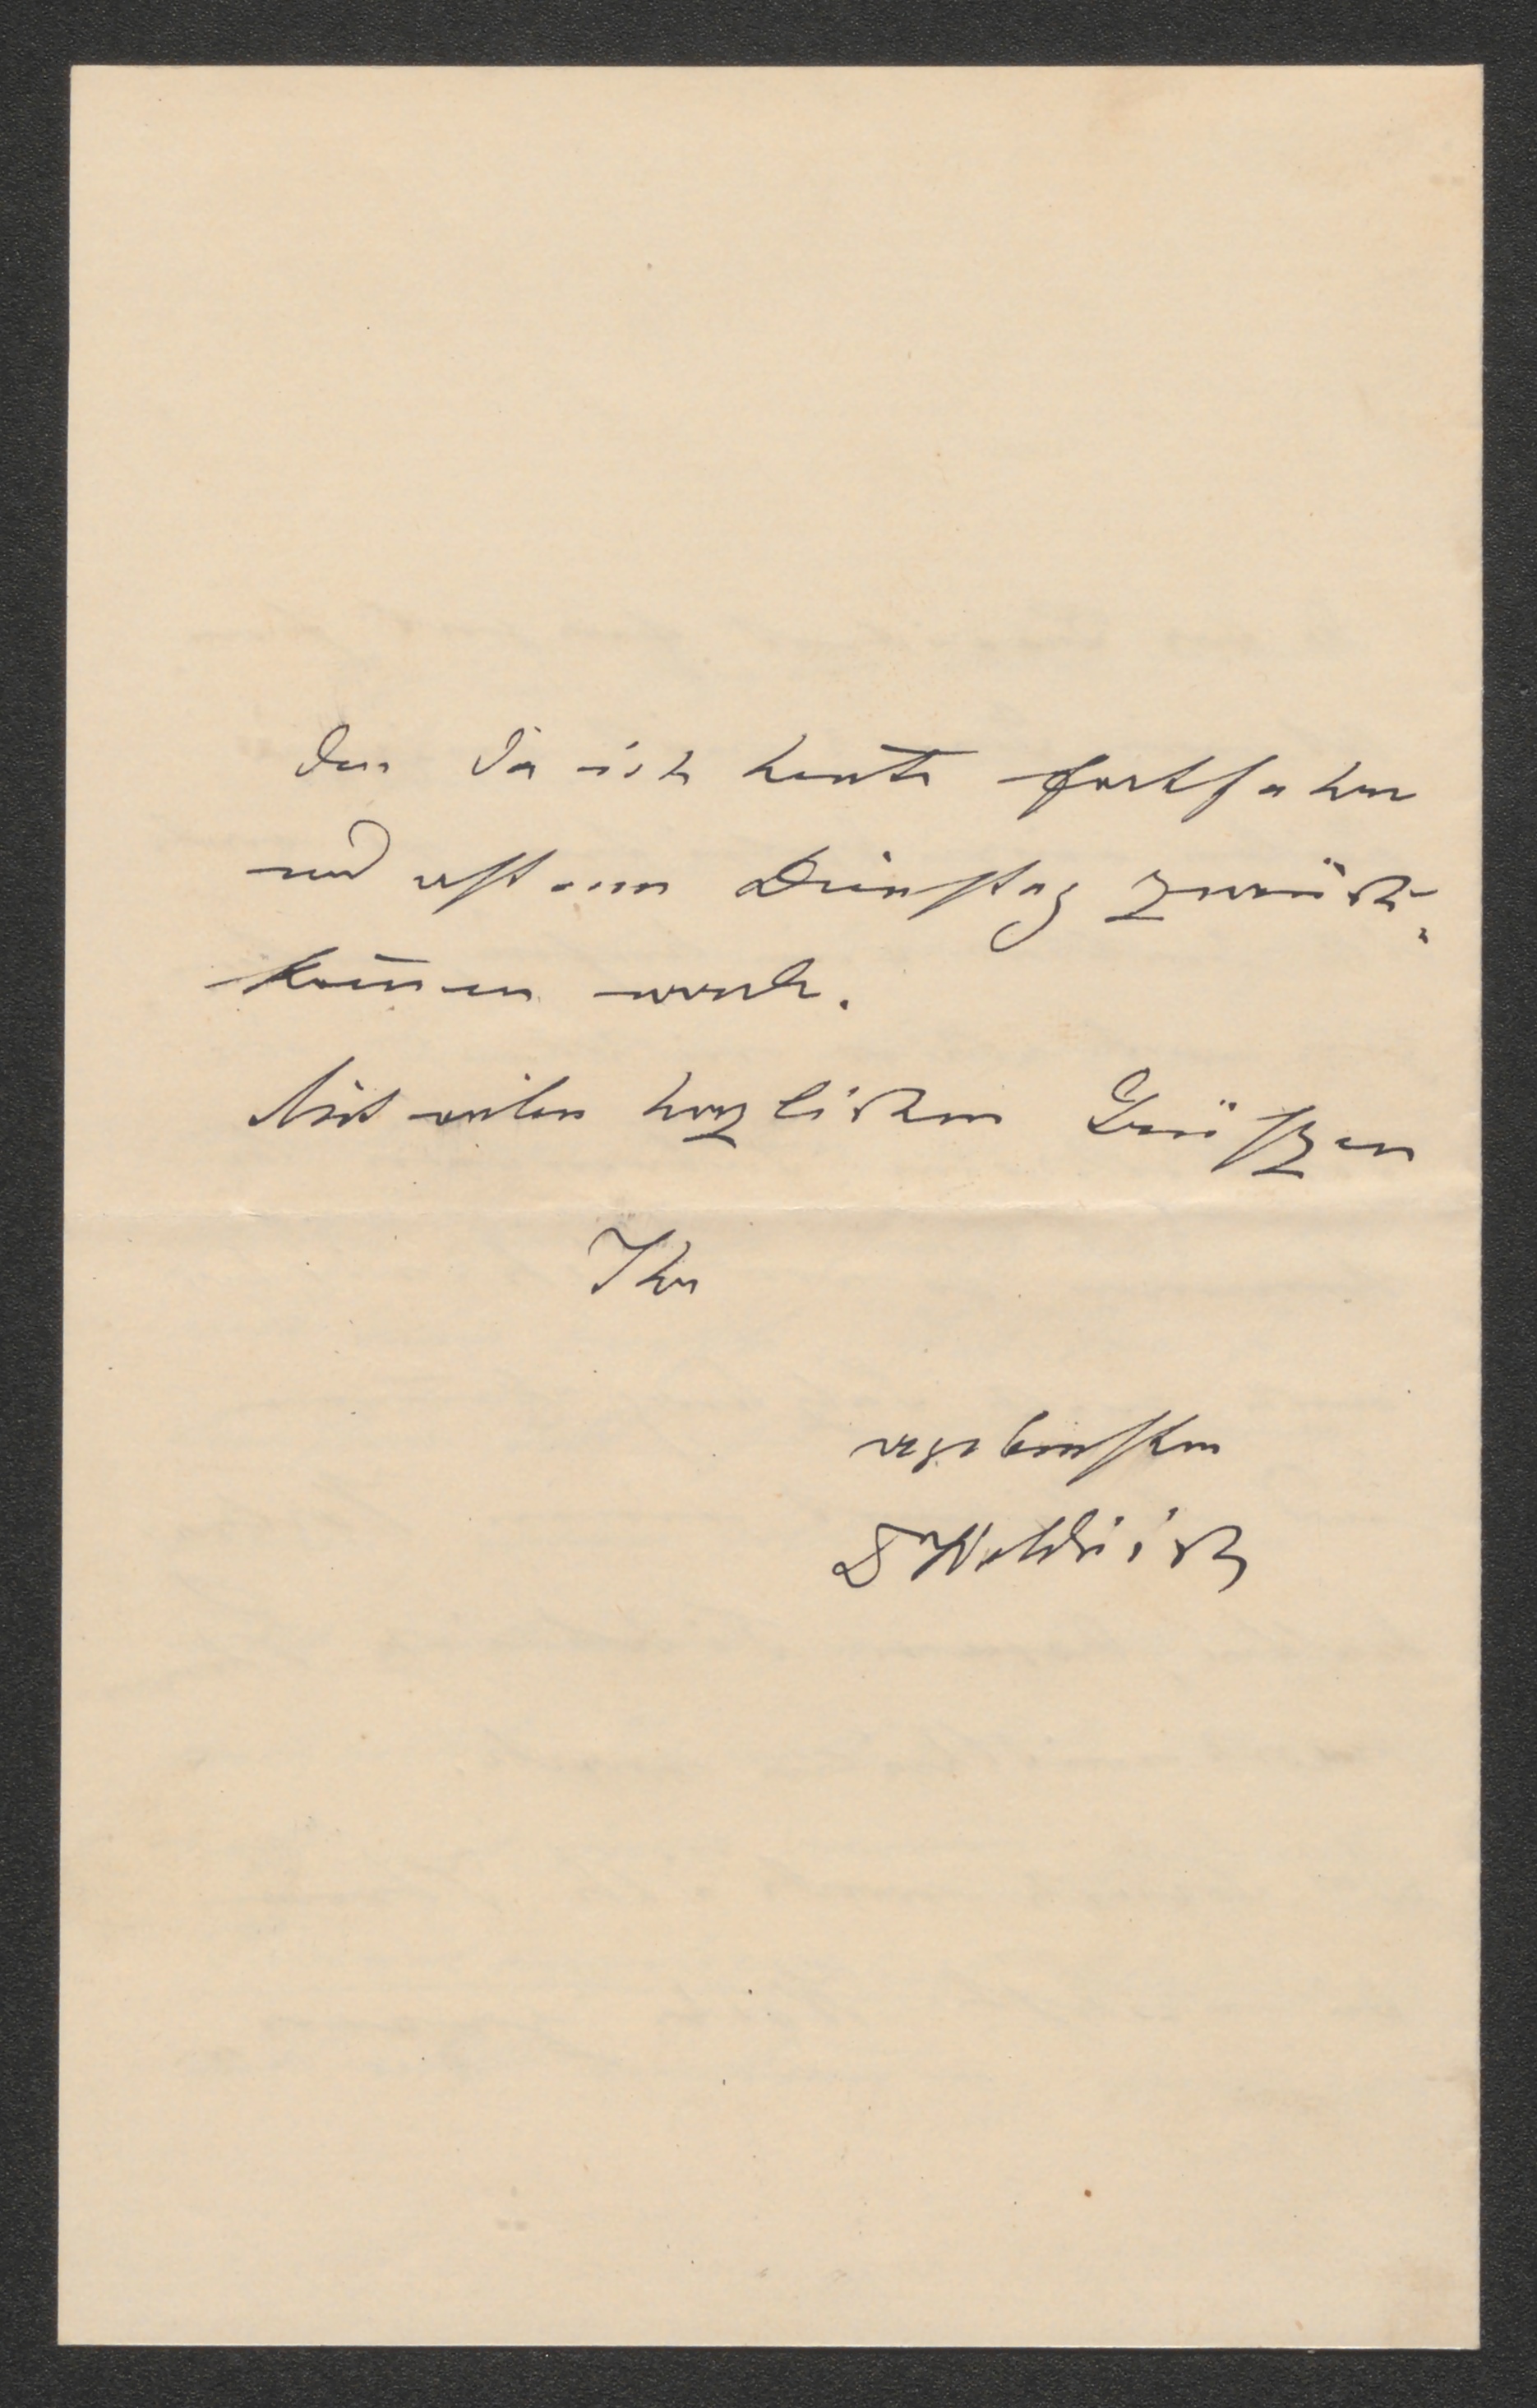 den da ich heute fortfahre
und erst am Dienstag zurück-
kom̄en werde.
Mit vielen herzlichen Grüßen
Ihr
ergebenster